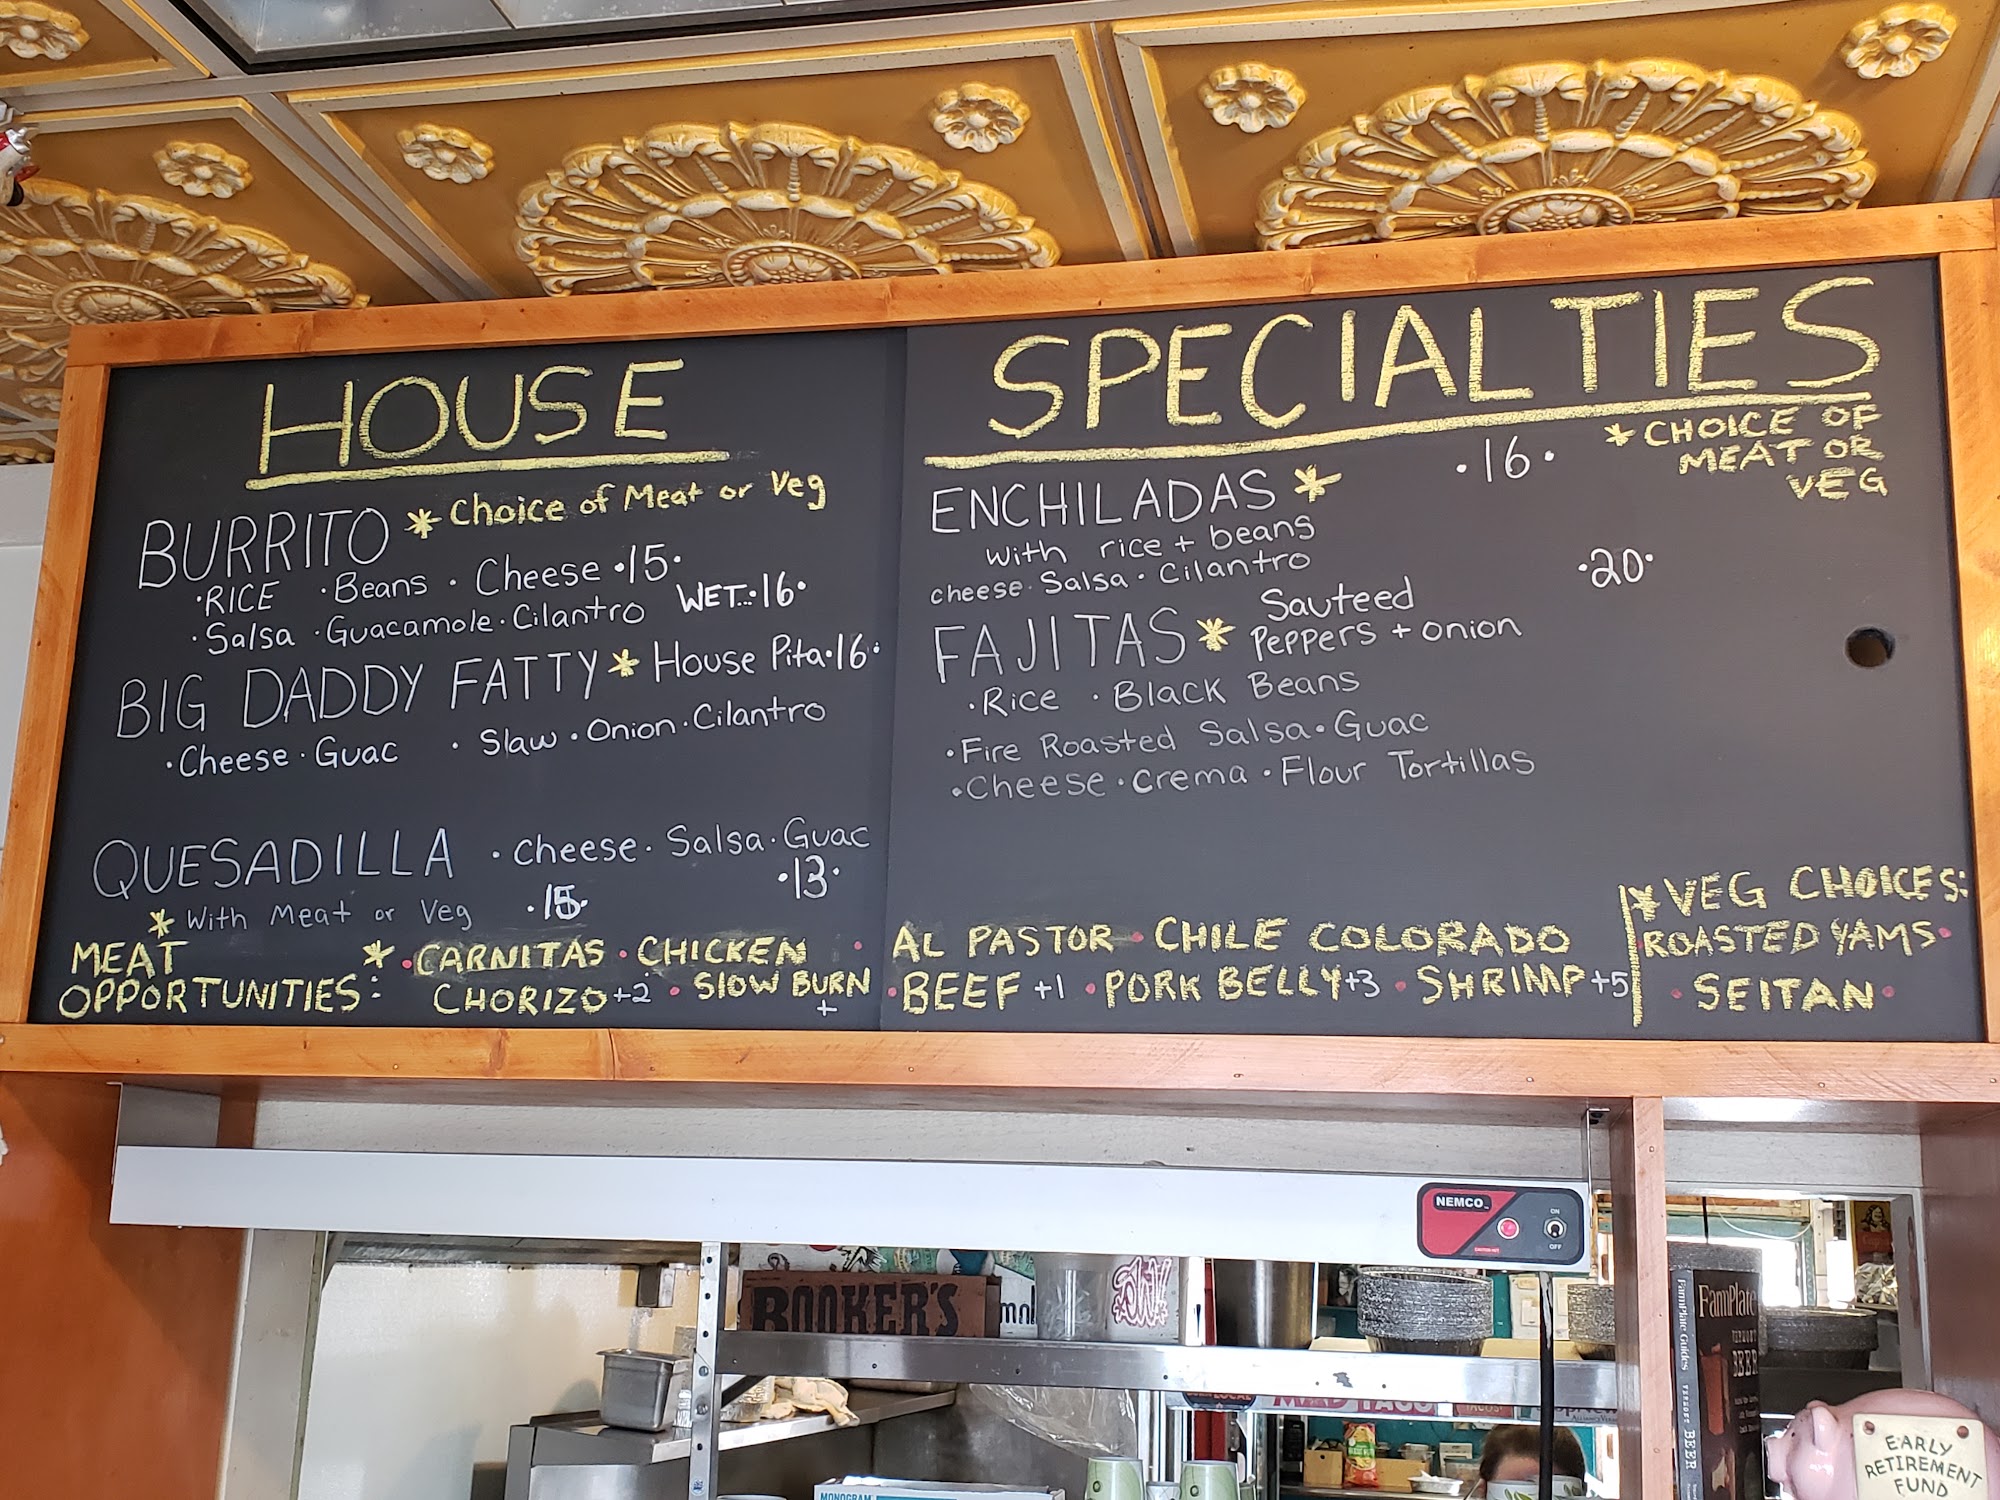 HOUSE
BURRITO * Choice of Meat or Veg
·RICE ·Beans · Cheese ·15·
·Salsa ·Guacamole·Cilantro WET...·16·
BIG DADDY FATTY * House Pita·16·
·Cheese·Guac · Slaw·Onion·Cilantro
QUESADILLA · Cheese· Salsa·Guac
·13·
* With Meat or Veg ·15·
SPECIALTIES
* CHOICE OF
MEAT OR
VEG
ENCHILADAS * ·16·
with rice + beans
cheese·Salsa·Cilantro
FAJITAS * Sauteed ·20·
Peppers + onion
·Rice ·Black Beans
·Fire Roasted Salsa·Guac
·Cheese·Crema·Flour Tortillas
MEAT
OPPORTUNITIES:
* ·CARNITAS·CHICKEN · AL PASTOR·CHILE COLORADO
CHORIZO+2 ·SLOW BURN + ·BEEF +1 ·PORK BELLY+3 ·SHRIMP+5
* VEG CHOICES:
·ROASTED YAMS·
·SEITAN·
NEMCO
ON
OFF
BOOKER'S
MAD TACO
TACOS
FarmPlate
BEER
FarmPlate Guides
BEER
MONOGRAM
EARLY
RETIREMENT
FUND